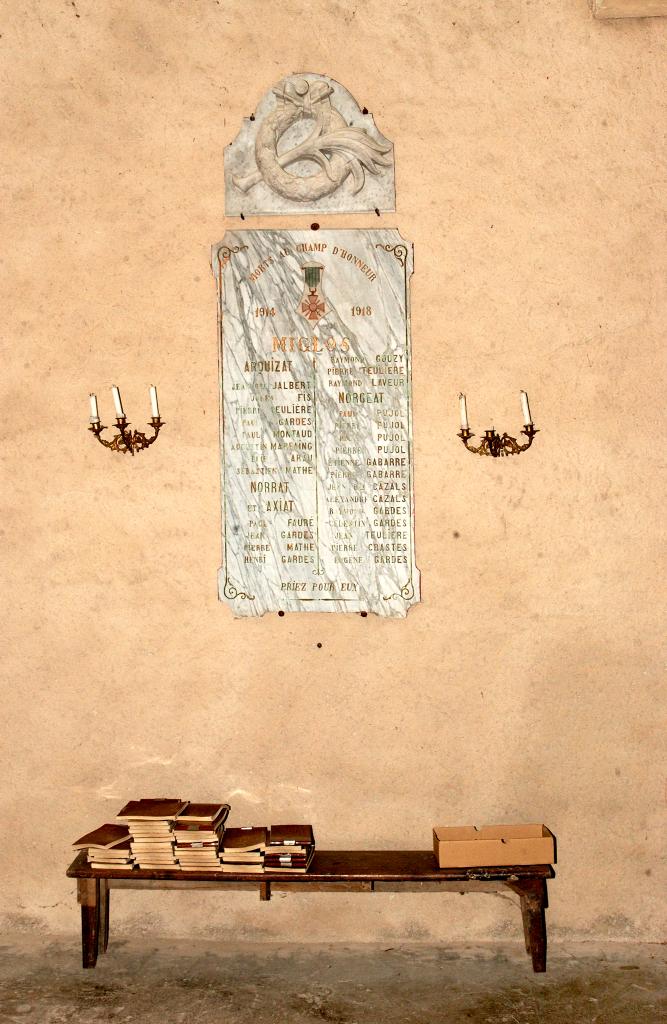 MORTS AU CHAMP D'HONNEUR
1914 1918
MIGLOS
ARQUIZAT
JALBERT
JULES FIS
PIERRE TEULIÈRE
PAUL GARDES
PAUL MONTAUD
AUGUSTIN
ARAU
SÉBASTIEN MATHE
NORRAT
ET AXIAT
PAUL FAURE
JEAN GARDES
PIERRE MATHE
HENRI GARDES
RAYMOND GOUZY
PIERRE TEULIÈRE
RAYMOND LAVEUR
NORGEAT
PAUL PUJOL
PIERRE PUJOL
PUJOL
PIERRE PUJOL
ÉTIENNE GABARRE
PIERRE GABARRE
JEAN CAZALS
ALEXANDRE CAZALS
RAYMOND GARDES
CÉLESTIN GARDES
JEAN TEULIÈRE
PIERRE CHASTES
EUGÈNE GARDES
PRIEZ POUR EUX